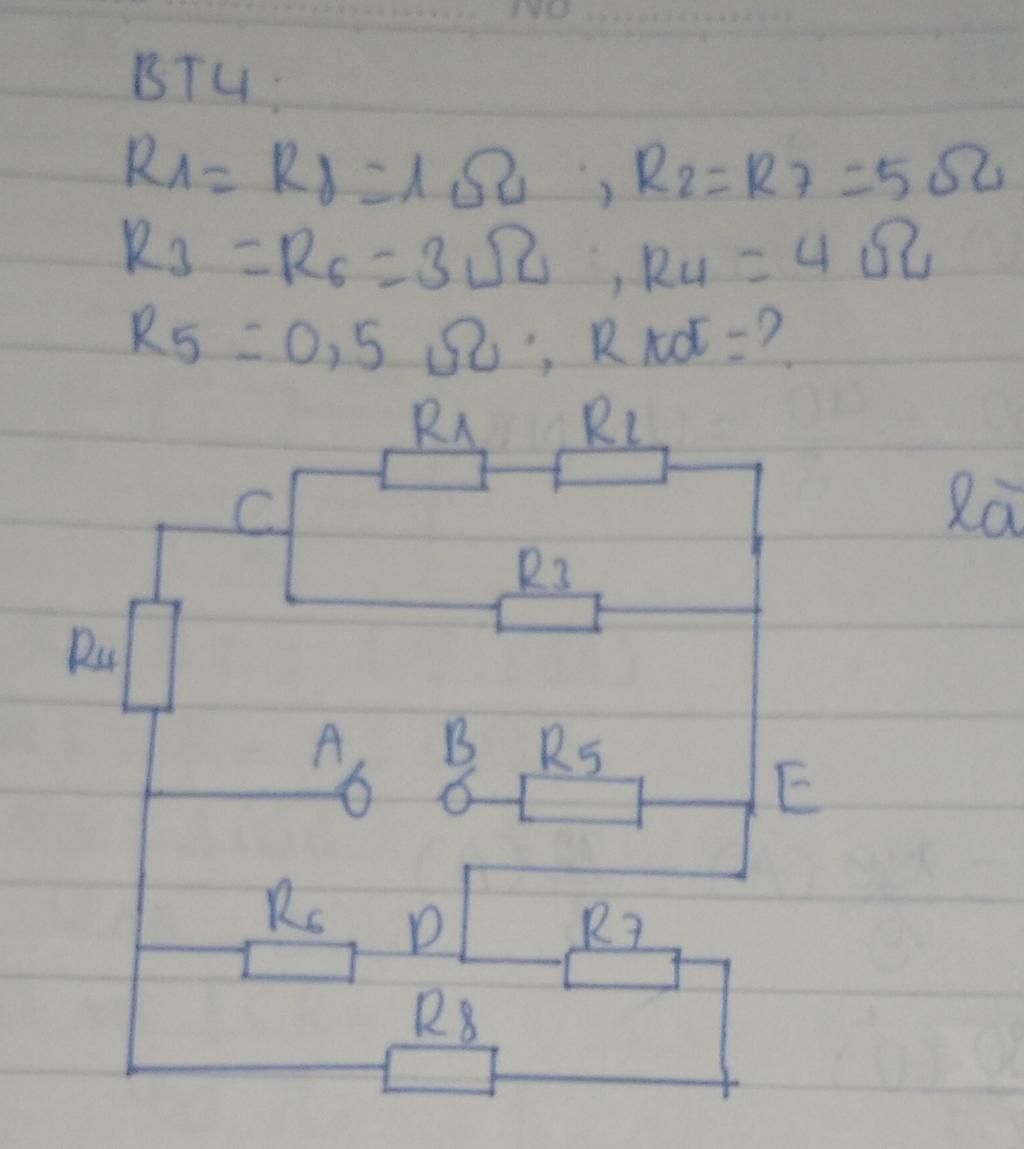 No
BT4:
R1 = R8 = 1 Ω ; R2 = R7 = 5 Ω
R3 = R6 = 3 Ω ; R4 = 4 Ω
R5 = 0,5 Ω ; R tđ = ?
R1 R2
C
là
R3
R4
A B R5
E
R6 D R7
R8